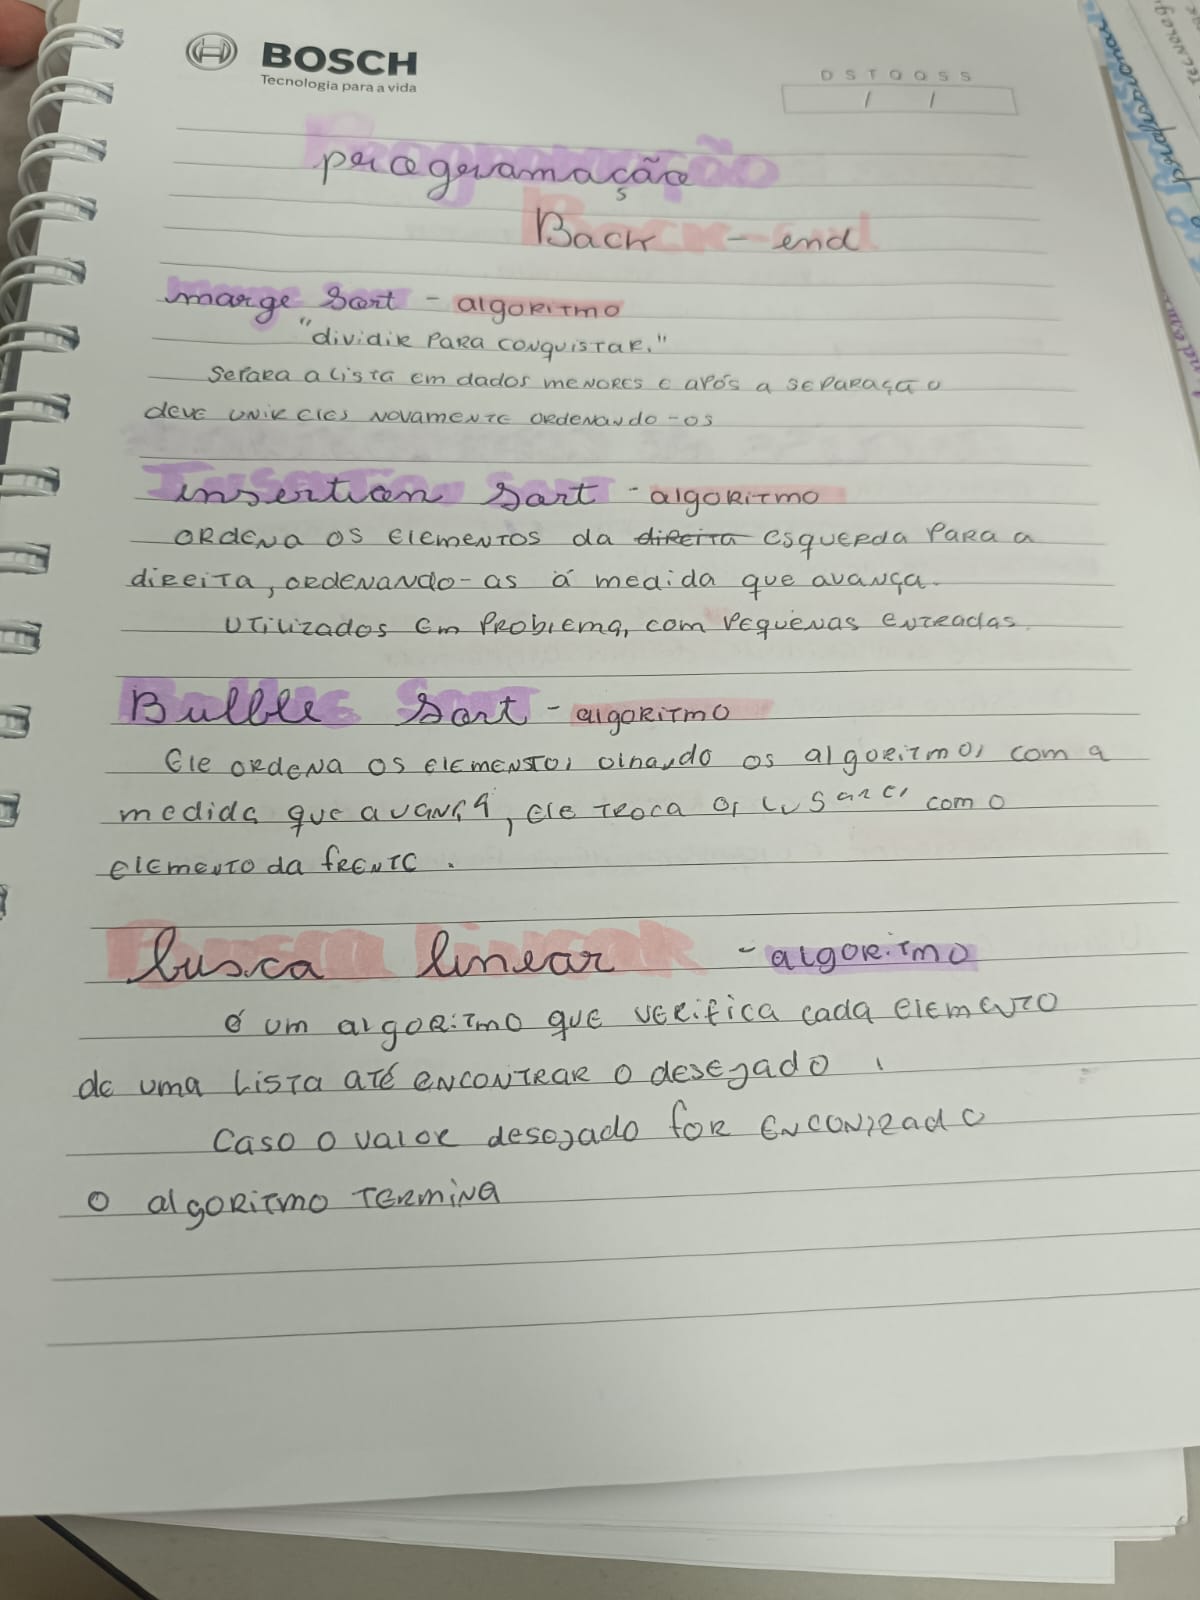 BOSCH
Tecnologia para a vida
D S T Q Q S S
/ /
programação
Back - end
marge Sort - algoritmo
"dividir para conquistar."
Separa a lista em dados menores e após a separação
deve unir eles novamente ordenando-os
insertion sort - algoritmo
ordena os elementos da direita esquerda para a
direita, ordenando-as á medida que avança.
Utilizados em problema, com pequenas entradas.
Bubble Sort - algoritmo
Ele ordena os elementos, olhando os algoritmos com a
medida que avança, ele troca os lugares com o
elemento da frente.
busca linear - algoritmo
é um algoritmo que verifica cada elemento
de uma lista até encontrar o desejado.
Caso o valor desejado for encontrado
o algoritmo termina